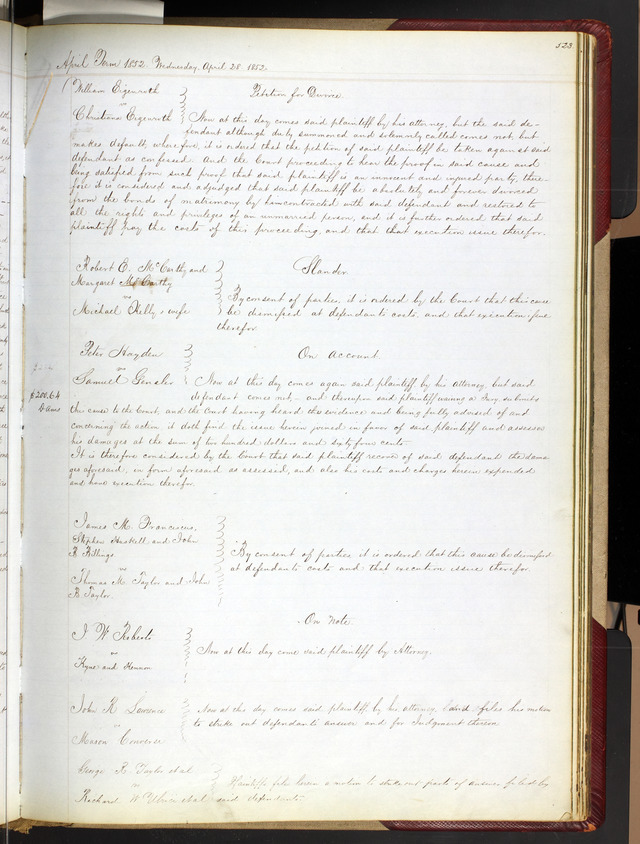 523
April Term 1852. Wednesday April 28. 1852.
William Eigenroth
vs
Christiana Eigenroth
Petition for Divorce
Now at this day comes said plaintiff by his attorney, but the said de-
fendant although duly summoned and solemnly called comes not, but
makes default, wherefore, it is ordered that the petition of said plaintiff be taken against said
defendant as confessed. And the Court proceeding to hear the proof in said cause and
being satisfied from such proof that said plaintiff is an innocent and injured party, there-
fore it is considered and adjudged that said plaintiff be absolutely and forever divorced
from the bonds of matrimony by him contracted with said defendant and restored to
all the rights and privileges of an unmarried person, and it is further ordered that said
plaintiff pay the costs of this proceeding, and that that execution issue therefor.
Robert E. McCarthy and
Margaret McCarthy
vs
Michael Kelly & wife
Slander
By consent of parties, it is ordered by the Court that this cause
be dismissed at defendants costs and that execution issue
therefor
Peter Hayden
vs
Samuel Gensler
On Account
$200.64
Dams
Now at this day comes again said plaintiff by his attorney but said
defendant comes not, and thereupon said plaintiff waiving a Jury submits
this cause to the Court, and the Court having heard the evidence and being fully advised of and
concerning the action it doth find the issue herein joined in favor of said plaintiff and assesses
his damages at the sum of two hundred dollars and sixty four cents.
It is therefore considered by the Court that said plaintiff recover of said defendant the dama-
ges aforesaid, in form aforesaid as assessed, and also his costs and charges herein expended
and have execution therefor.
James M. Franciscus,
Stephen Haskell and John
R. Billings
vs
Thomas M. Taylor and John
B. Taylor.
By consent of parties it is ordered that this cause be dismissed
at defendants costs and that execution issue therefor
J W Roberts
vs
Kyne and
On Note
Now at this day come said plaintiff by Attorney.
John K Lawrence
vs
Mason Converse
Now at this day comes said plaintiff by his attorney and files his motion
to strike out defendants answer and for Judgment thereon
George R. Taylor et al
vs
Richard W Ulrici et al
Plaintiffs files herein a motion to strike out parts of answer filed by
said defendants